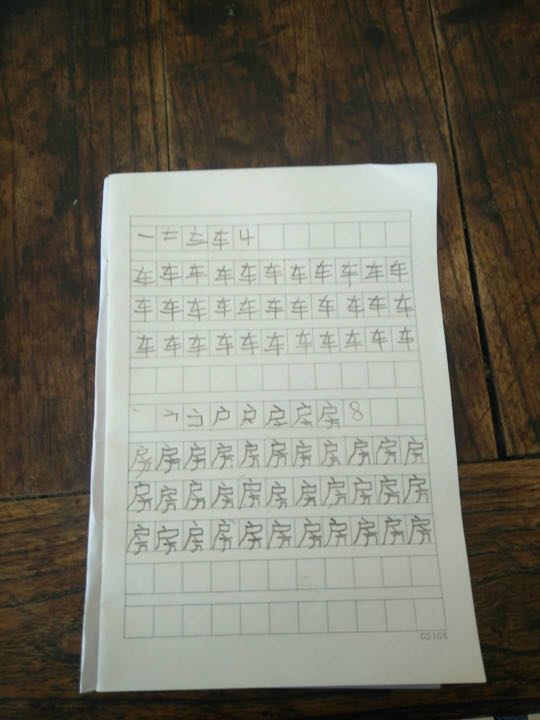 一 车 4
车车车车车车车车车车车
车车车车车车车车车车车
车车车车车车车车车车车
丶 户 房 8
房房房房房房房房房房房
房房房房房房房房房房房
房房房房房房房房房房房
GS106